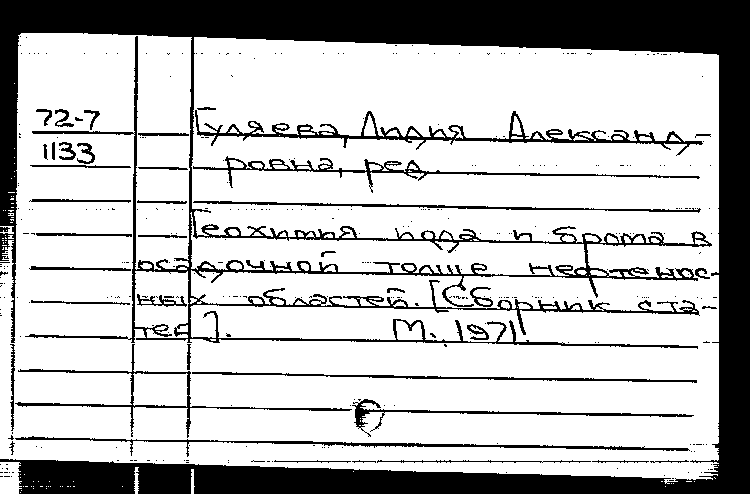 72-7
1133
Гуляева, Лидия Александ-
ровна, ред.
Геохимия иода и брома в
осадочной толще нефтенос-
ных областей. [Сборник ста-
тей]. М., 1971.